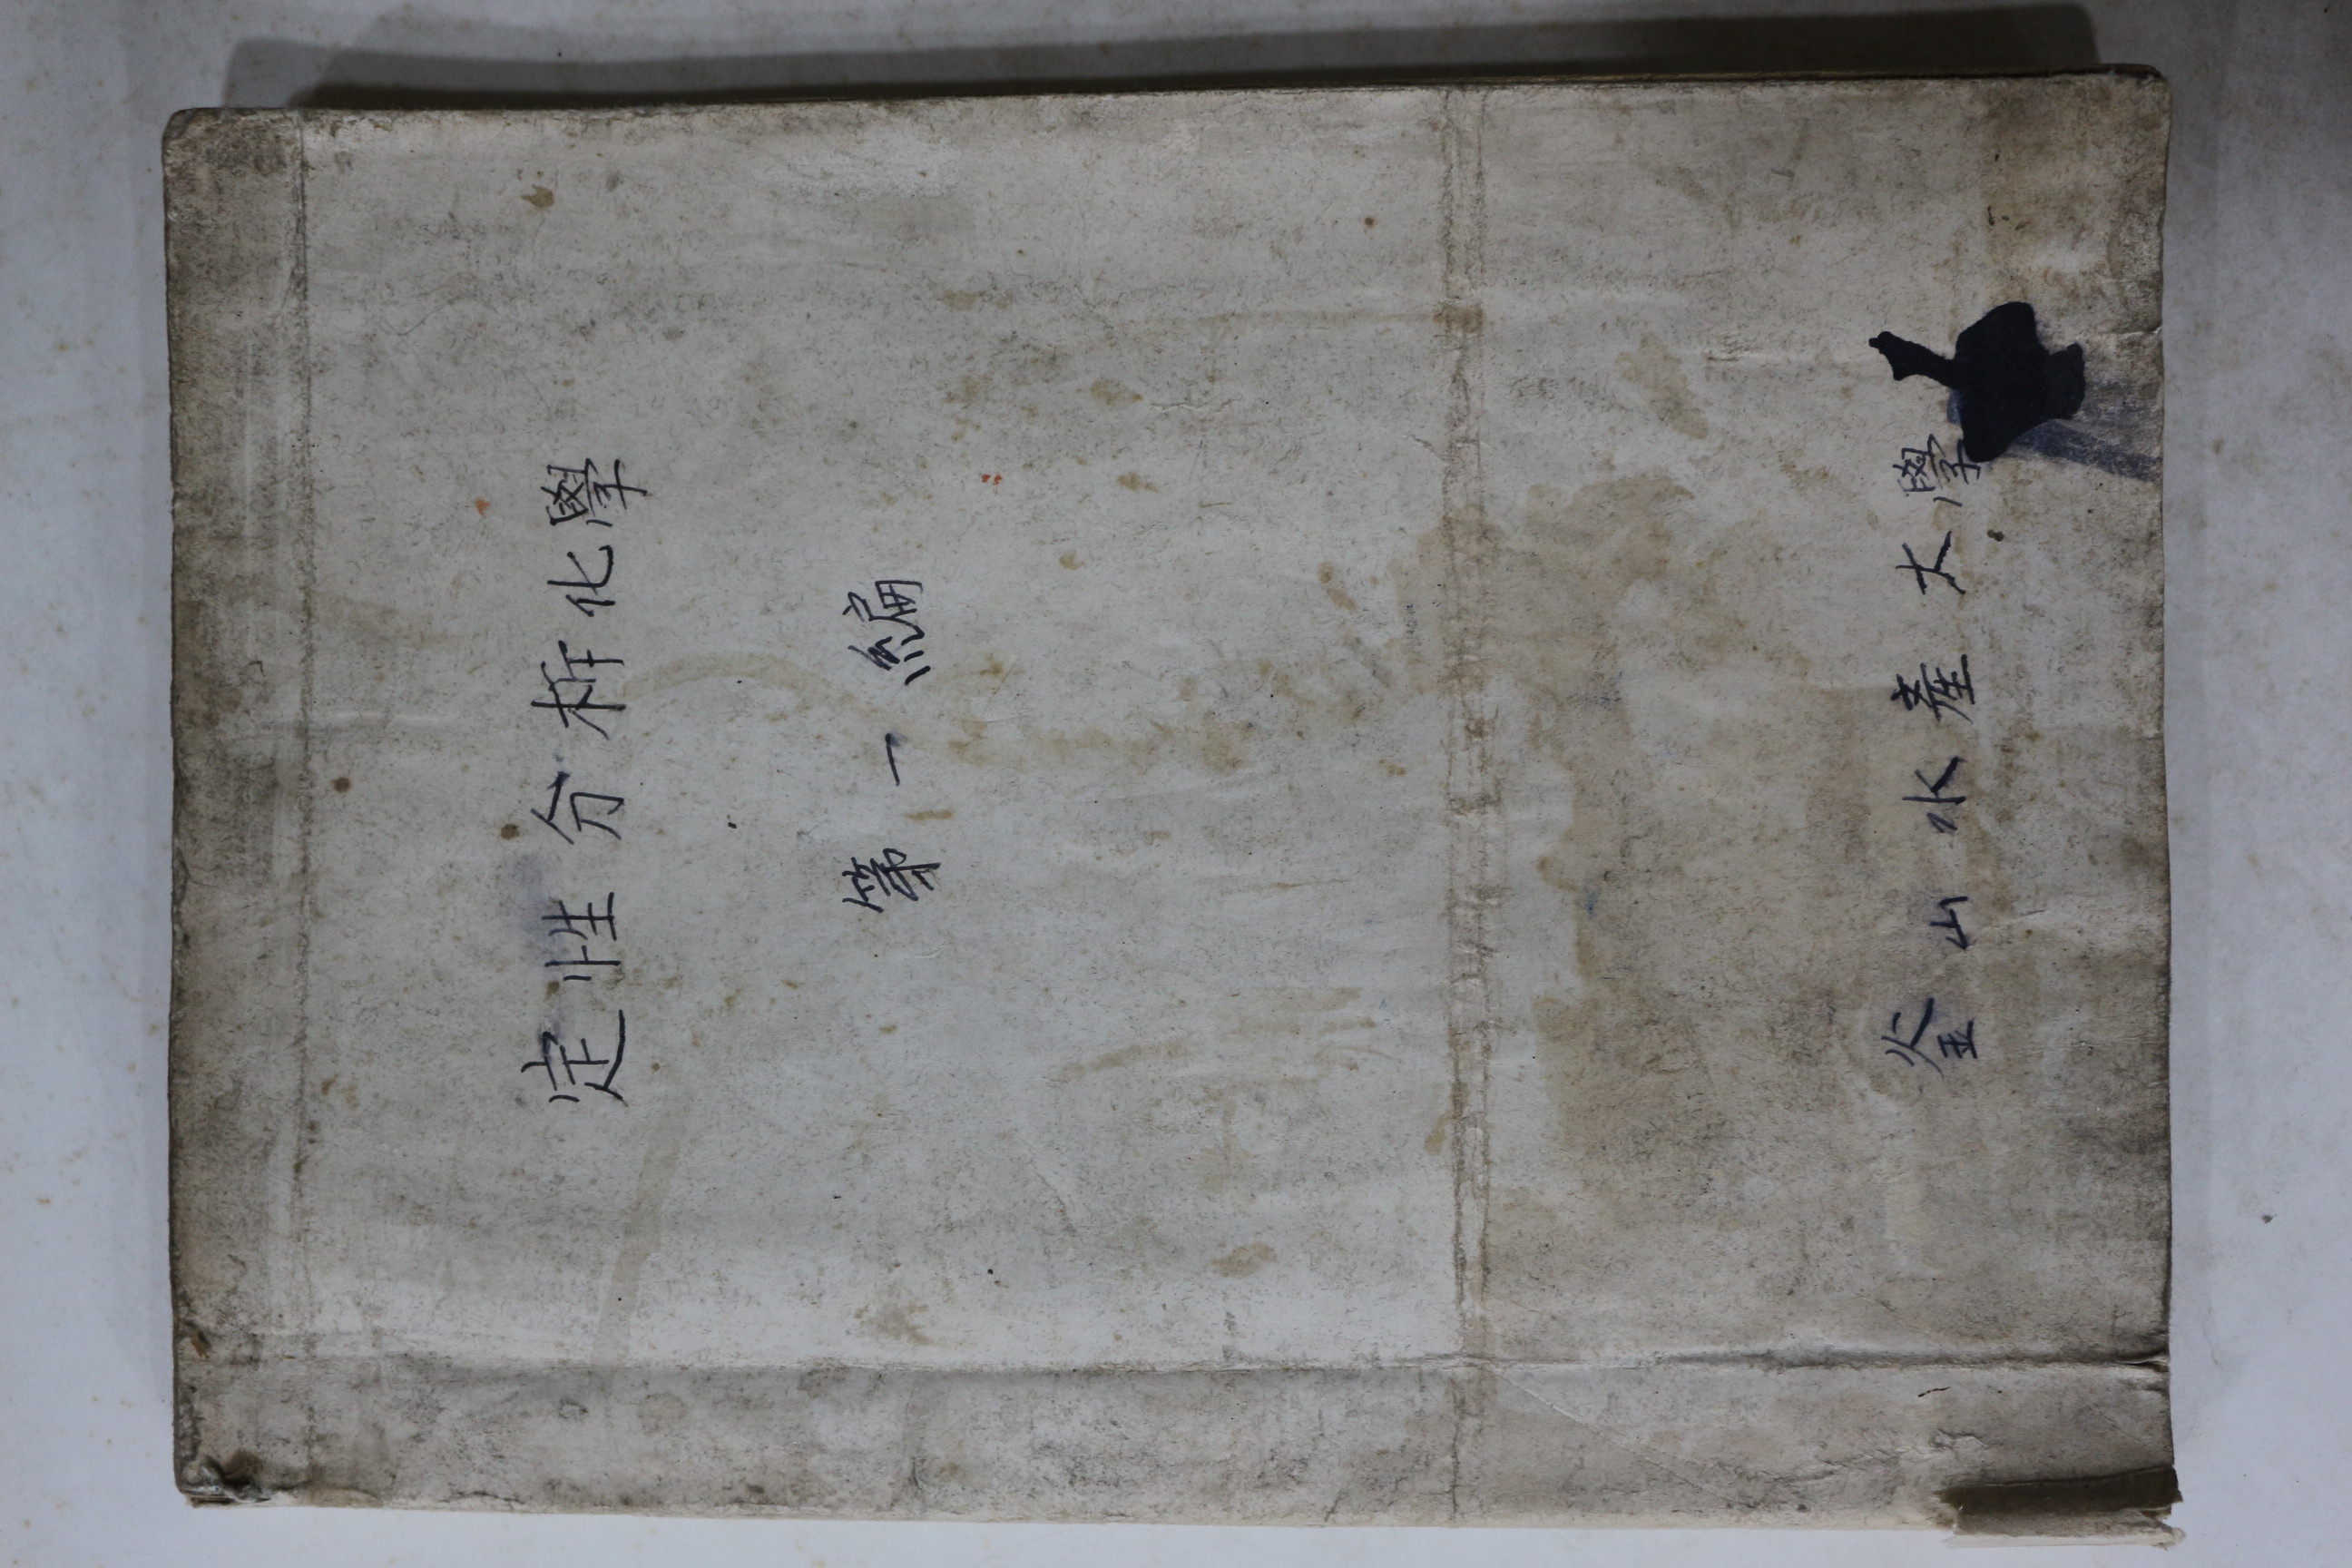 定性分析化學
第一編
釜山水産大學